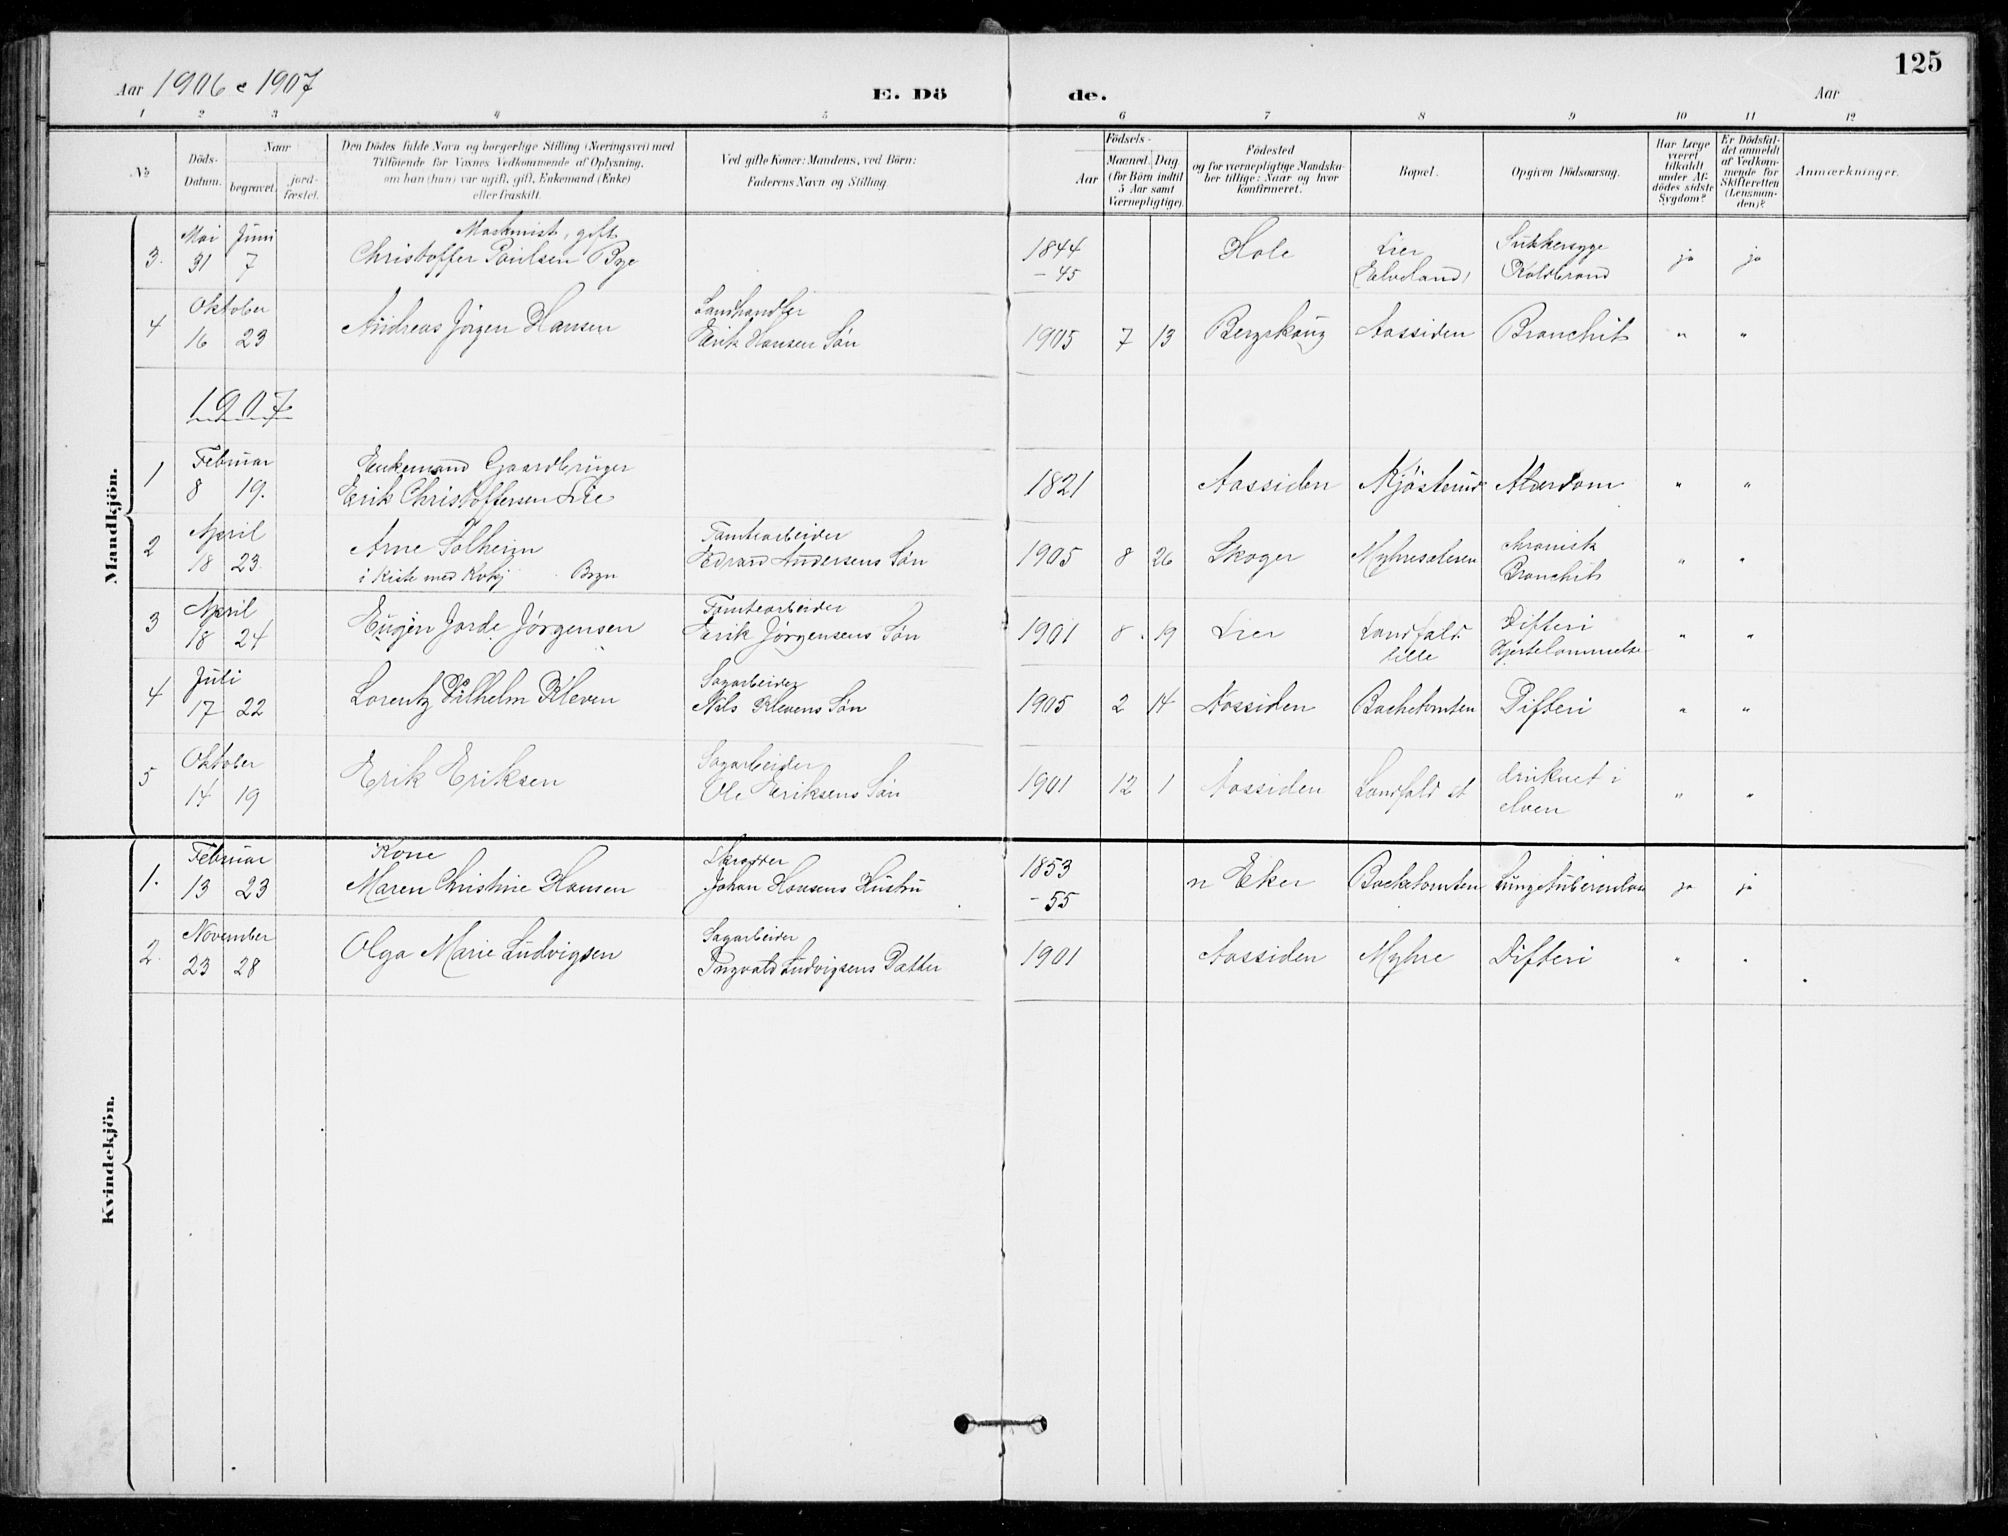 125
Aar 1906 & 1907 E. Dö de. Aar
1 2 3 4 5 6 7 8 9 10 11 12
No
Döds-Datum.
Naar
begravet.
jord-fæstet.
Den Dödes fulde Navn og borgerlige Stilling (Næringsvei) med
Tilföiende for Voxnes Vedkommende af Oplysning,
om han (hun) var ugift, gift, Enkemand (Enke)
eller fraskilt.
Ved gifte Koner: Mandens, ved Börn:
Faderens Navn og Stilling.
Födsels-
Aar
Maaned. Dag
(for Börn indtil
5 Aar samt
Værnepligtige).
Födested
og for værnepligtige Mandska-
ber tillige: Naar og hvor
konfirmeret.
Bopæl.
Opgiven Dödsaarsag.
Har Læge
været
tilkaldt
under Af-
dödes sidste
Sygdom?
Er Dödsfal-
det anmeldt
af Vedkom-
mende for
Skifteretten
(Lensman-
den)?
Anmærkninger.
Mandkjön.
Mai Juni Maskinist, gift 1844 Lier Sukkersyge
3. 31 7 Christoffer Paulsen Bye - 45 Hole (Elveland) Koldbrand ja ja
Oktober Landhandler
4 16 23 Andreas Jörgen Hansen Erik Hansen Sön 1905 7 13 Bergskaug Aassiden Bronchit " "
1907
Februar Enkemand Gaardbruger
1 8 19. Erik Christoffersen Lie 1821 Aassiden Kjösterud Alderdom " "
April Tomtearbeider chronisk
2 18 23. Arne Solheim Edvard Andersens Sön 1905 8 26 Skoger Bronchit " "
i Kiste med
April Tomtearbeider Difteri
3 18 24 Eugén Jorde Jörgensen Erik Jörgensens Sön 1901 8 19 Lier Landfald Hjertelammelse " "
lille
Juli Sagarbeider
4 17 22 Lorentz Vilhelm Kleven Nils Klevens Sön 1905 2 14 Aassiden Bachetomten Difteri " "
Oktober Sagarbeider druknet i
5 14 19 Erik Eriksen Ole Eriksens Sön 1901 12 1 Aassiden Landfald st elven " "
Kvindekjön.
Februar Kone Skrædder 1853
1. 13 23 Maren Christine Hansen Johan Hansens Hustru - 55 n Eker Bachetomten ja ja
November Sagarbeider
2. 23 28 Olga Marie Ludvigsen Ingvald Ludvigsens Datter 1901 Aassiden Myhre Difteri " "